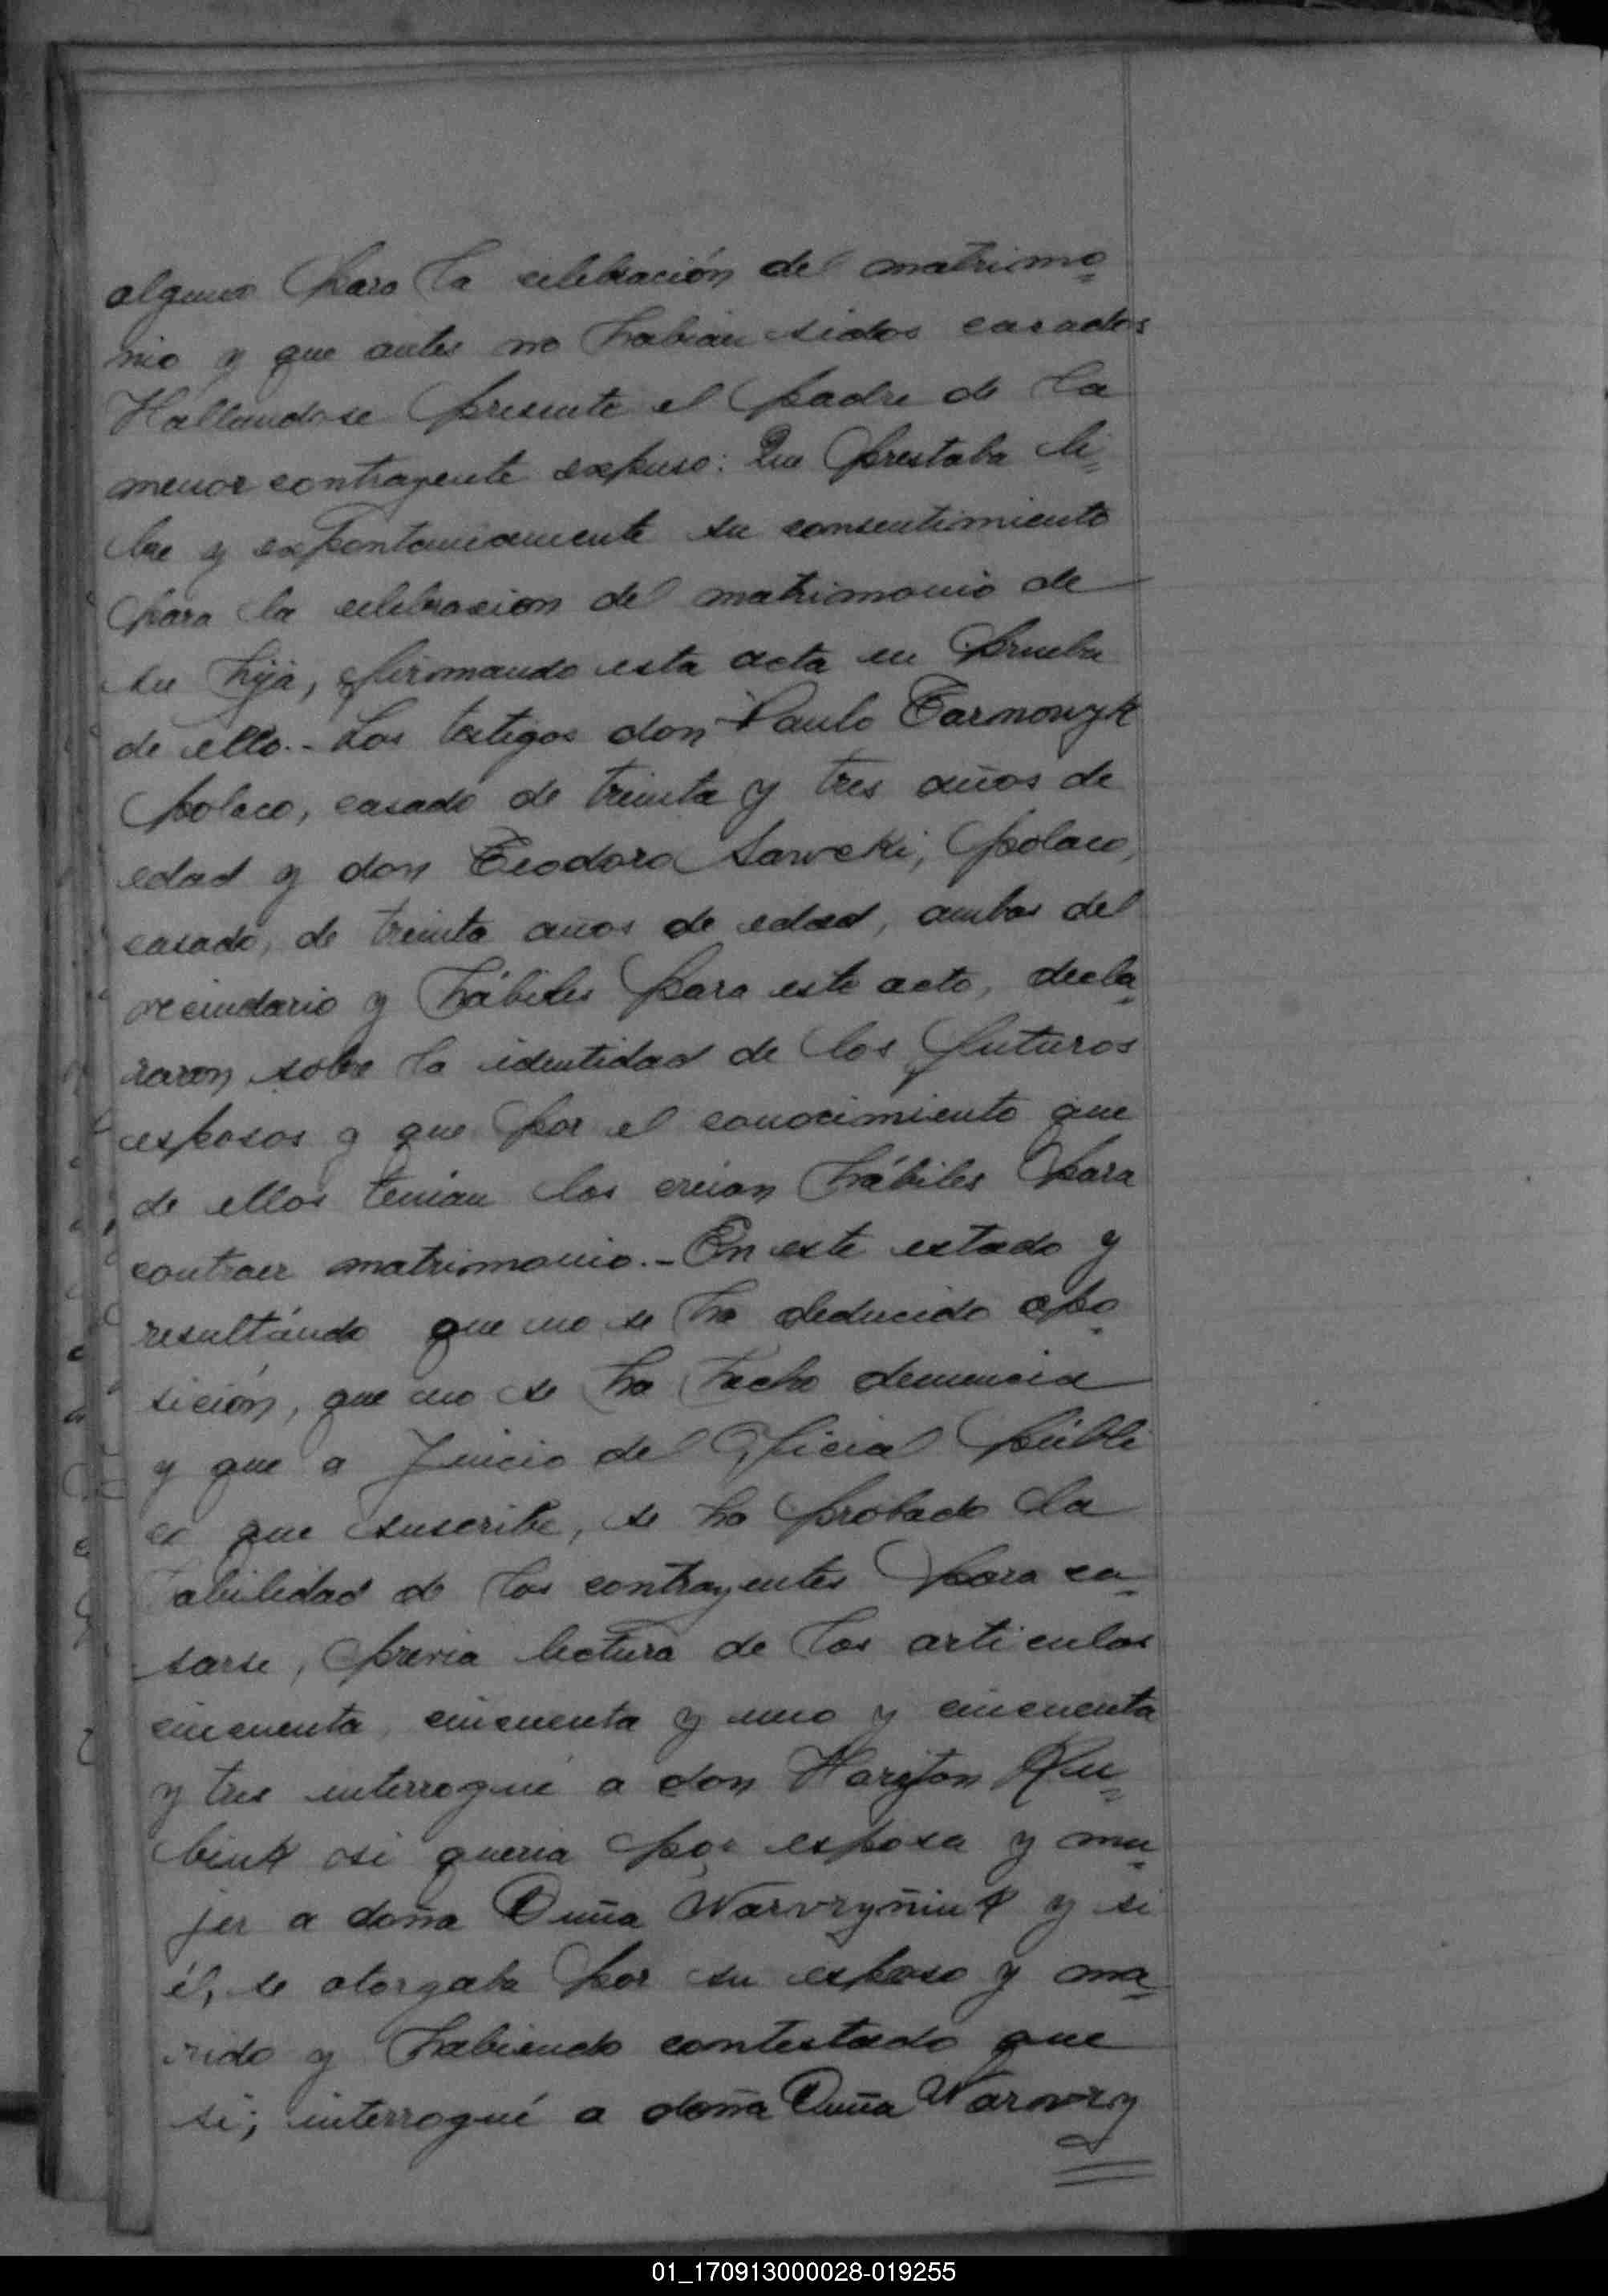 alguno para la celebración del matrimo=
nio y que antes no habian sidos casados
Hallandose presente el padre de la
menor contrayente expuso: Que prestaba li=
bre y expontaneamente su consentimiento
para la celebracion del matrimonio de
su hija, firmando esta acta en prueba
de ello.- Los testigos don Paulo Tarnowyk
polaco, casado de treinta y tres años de
edad y don Teodoro Sawcki, polaco,
casado, de treinta años de edad, ambos del
vecindario y hábiles para este acto, decla=
raron sobre la identidad de los futuros
esposos y que por el conocimiento que
de ellos tenian los creian hábiles para
contraer matrimonio.- En este estado y
resultándo que no se ha deducido opo=
sición, que no se ha hecho denuncia
y que a Juicio del Oficial públi
co que suscribe, se ha probado la
abilidad de los contrayentes para ca=
sarse, previa lectura de los articulos
cincuenta, cincuenta y uno y cincuenta
y tres interrogué a don Hariton Ru=
biuk si queria por esposa y mu=
jer a doña Duña Warvryñiuk y si
él, se otorgaba por su esposo y ma=
rido y habiendo contestado que
si; interrogué a doña Duña Warvry
=
01_170913000028-019255